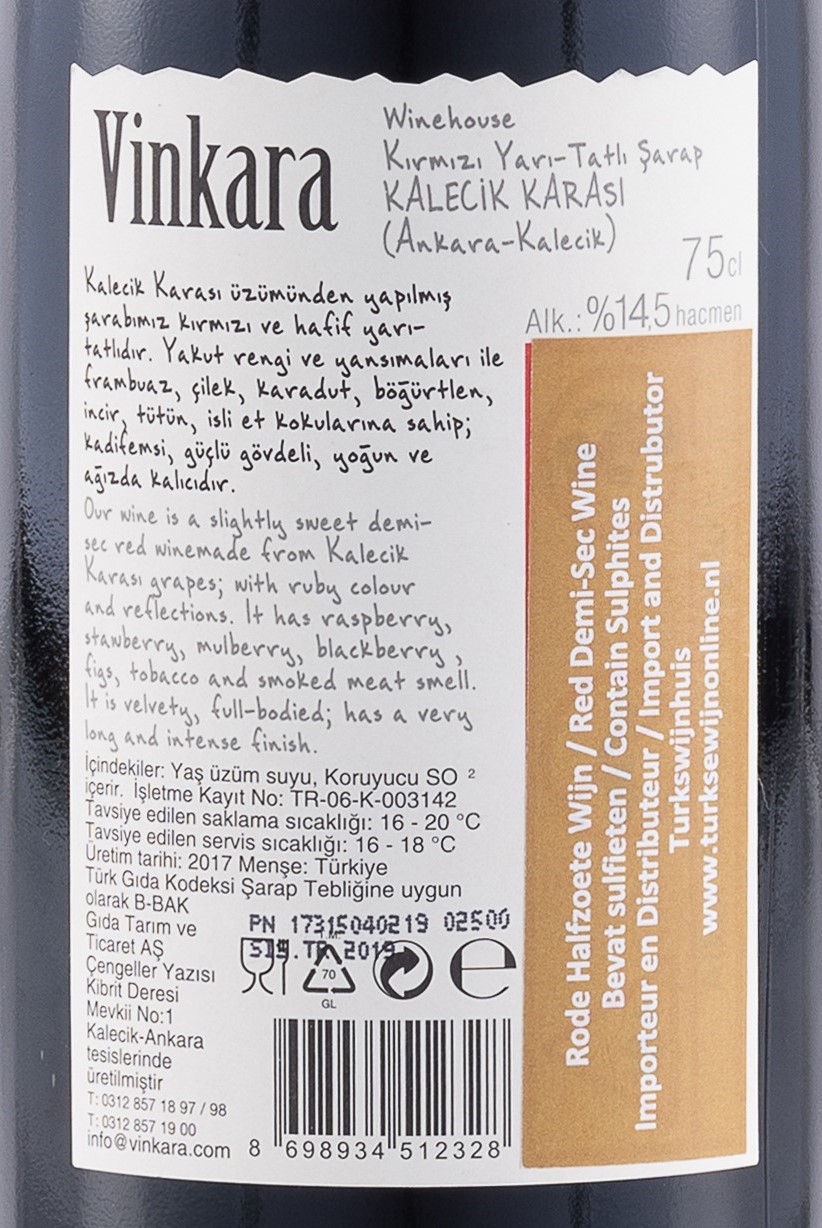 Vinkara
Winehouse
Kırmızı Yarı-Tatlı Şarap
KALECİK KARASI
(Ankara-Kalecik)
75cl
Alk.: %14,5 hacmen
Kalecik Karası üzümünden yapılmış
şarabımız kırmızı ve hafif yarı-
tatlıdır. Yakut rengi ve yansımaları ile
frambuaz, çilek, karadut, böğürtlen,
incir, tütün, isli et kokularına sahip;
kadifemsi, güçlü gövdeli, yoğun ve
ağızda kalıcıdır.
Our wine is a slightly sweet demi-
sec red winemade from Kalecik
Karası grapes; with ruby colour
and reflections. It has raspberry,
stawberry, mulberry, blackberry ,
figs, tobacco and smoked meat smell.
It is velvety, full-bodied; has a very
long and intense finish.
İçindekiler: Yaş üzüm suyu, Koruyucu SO ²
içerir. İşletme Kayıt No: TR-06-K-003142
Tavsiye edilen saklama sıcaklığı: 16 - 20 °C
Tavsiye edilen servis sıcaklığı: 16 - 18 °C
Üretim tarihi: 2017 Menşe: Türkiye
Türk Gıda Kodeksi Şarap Tebliğine uygun
olarak B-BAK
Gıda Tarım ve
Ticaret AŞ
Çengeller Yazısı
Kibrit Deresi
Mevkii No:1
Kalecik-Ankara
tesislerinde
üretilmiştir
T: 0312 857 18 97 / 98
T: 0312 857 19 00
info@vinkara.com
PN 17315040219 02500
2019
70
GL
e
8 698934 512328
Rode Halfzoete Wijn / Red Demi-Sec Wine
Bevat sulfieten / Contain Sulphites
Importeur en Distributeur / Import and Distrubutor
Turkswijnhuis
www.turksewijnonline.nl